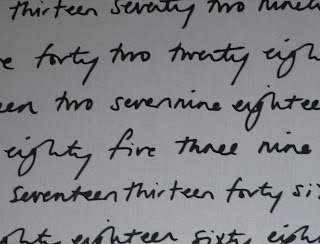 thirteen seventy two ninet
e forty two twenty eigh
een two sevennine eightee
eighty five three nine
seventeen thirteen forty si
ghty eighteen sixty eigh